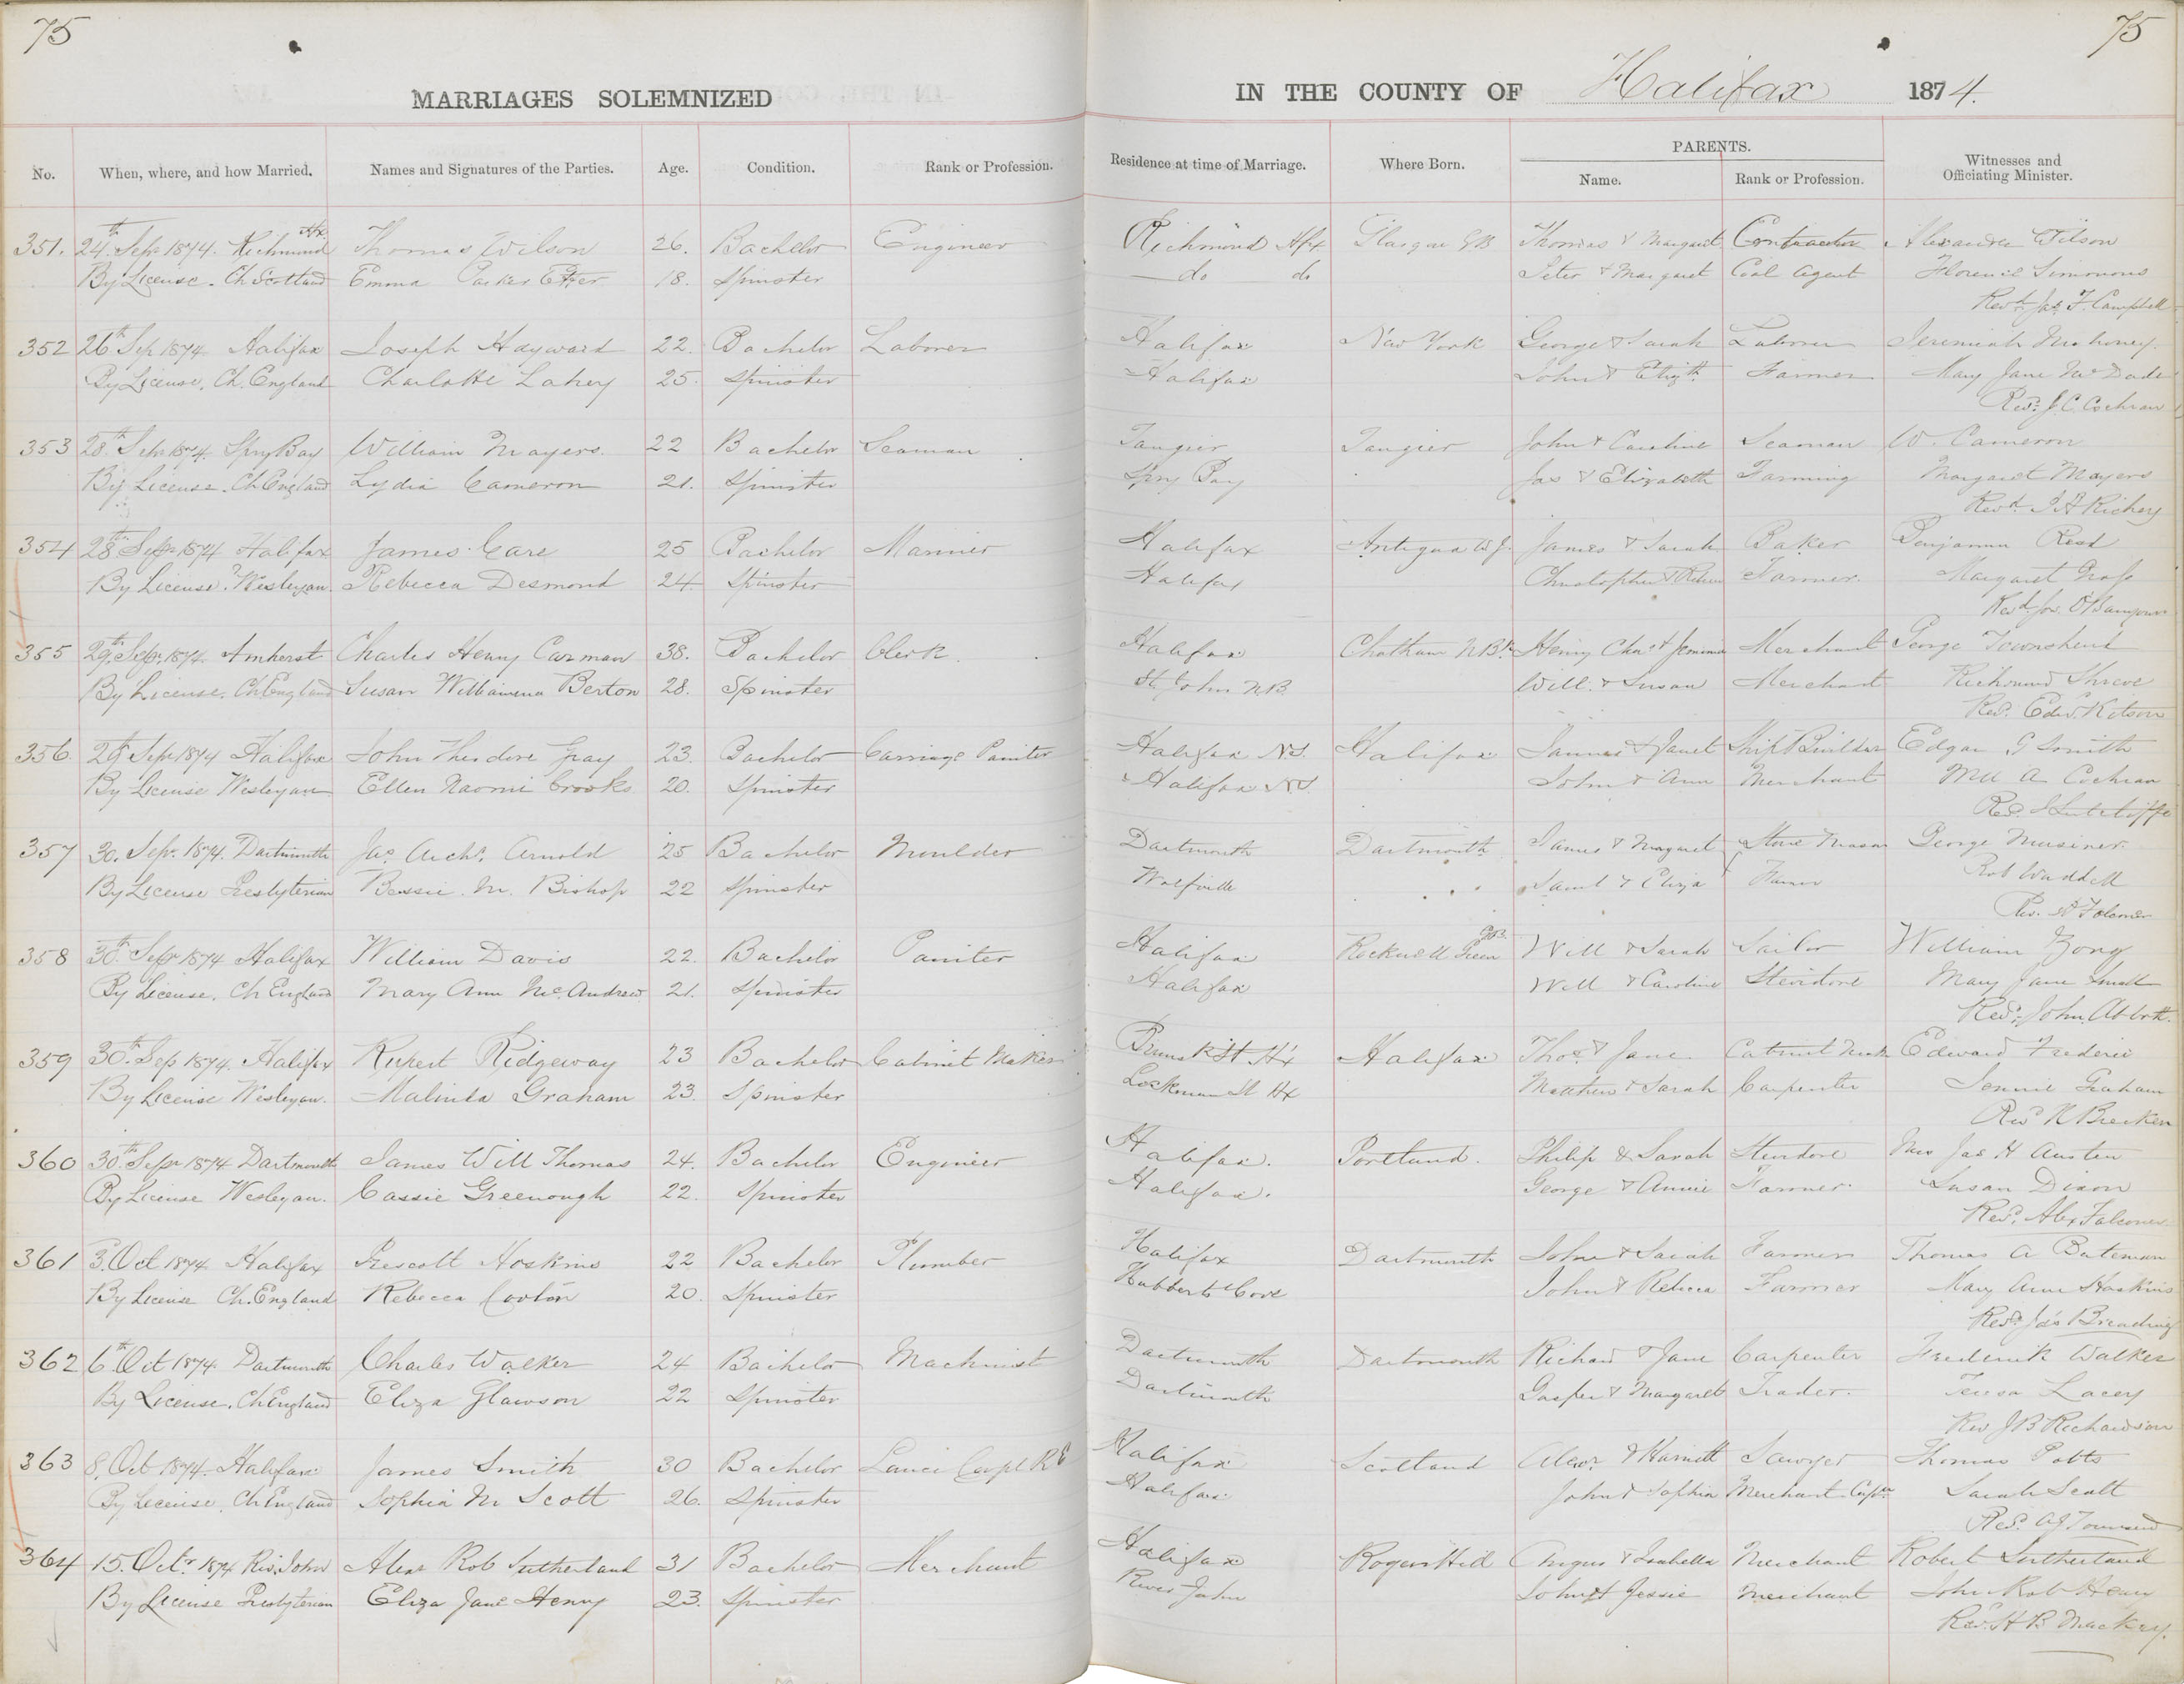 75
75
MARRIAGES SOLEMNIZED IN THE COUNTY OF Halifax 1874.
No. When, where, and how Married. Names and Signatures of the Parties. Age. Condition. Rank or Profession. Residence at time of Marriage. Where Born. PARENTS. Name. Rank or Profession. Witnesses and Officiating Minister.
351. 24th Sep 1874. Richmond Hx. Thomas Wilson 26. Bachelor Engineer Richmond Hfx Glasgow G.B Thomas & Margaret Contractor Alexander Wilson
By License. Ch Scotland Emma Parker Etter 18. Spinster do do Peter & Margaret Coal Agent Florence Simmons
Revd Jas F. Campbell
352 26th Sep 1874 Halifax Joseph Hayward 22. Bachelor Laborer Halifax New York George & Sarah Laborer Jeremiah Mahoney.
By License. Ch. England Charlotte Lahey 25. Spinster Halifax John & Elizth Farmer Mary Jane McDade
Revd. J. C. Cochran
353 28th Sep 1874. Spry Bay William Mayers. 22 Bachelor Seaman Tangier Tangier John & Caroline Seaman W. Cameron
By License. Ch England Lydia Cameron 21. Spinster Spry Bay Jas & Elizabeth Farming Margaret Mayers
Revd. J A Richey
354 28th Sepr 1874 Halifax James Care 25 Bachelor Mariner Halifax Antigua W.I. James & Sarah Baker Benjamin Reed
By License. Wesleyan. Rebecca Desmond 24. Spinster Halifax Christopher & Farmer. Margaret
Revd.
355 29th Sep. 1874. Amherst Charles Henry Carman 38. Bachelor Clerk. Halifax Chatham N.B. Henry Chas & Jemima Merchant George Townshend
By License. Ch England Susan Williamena Berton 28. Spinster St John N.B. Will. & Susan Merchant Richmond Shreve
Rev. Edw. Kitson
356. 29th Sepr 1874 Halifax John Theodore Gray 23. Bachelor Carriage Painter Halifax N.S. Halifax James & Janet Ship Builder Edgar G Smith
By License Wesleyan Ellen Naomi Crooks 20. Spinster Halifax N.S. John & Ann Merchant A Cochran
Rev. J Sutcliffe
357 30. Sepr. 1874. Dartmouth Jas. Archd. Arnold 25 Bachelor Moulder Dartmouth Dartmouth James & Margaret Stone Mason George
By License Presbyterian Bessie. M. Bishop 22 Spinster Wolfville Saml & Eliza Farmer Rob Waddell
Rev. A Falconer
358 30th Sepr 1874 Halifax William Davis 22. Bachelor Painter Halifax Rockwell Green G.B. Will & Sarah Sailor William Zong
By License. Ch England Mary Ann McAndrew 21. Spinster Halifax Will & Caroline Stevidore Mary Jane Small
Revd. John Abbott.
359 30th Sep 1874. Halifax Rupert Ridgeway 23 Bachelor Cabinet Maker Brunsk St Hx Halifax Thos. & Jane Cabinet Edward Frederic
By License Wesleyan. Malinda Graham 23. Spinster Lockman St Hx Matthew & Sarah Carpenter Jennie Graham
Revd R Brecken
360 30th Sepr 1874 Dartmouth James Will Thomas 24. Bachelor Engineer Halifax. Portland. Philip & Sarah Stevdore Mrs Jas H Austen
By License Wesleyan. Cassie Greenough 22. Spinster Halifax. George & Annie Farmer. Susan Dixon
Revd. Alex Falconer
361 3. Oct 1874 Halifax Prescott Hoskins 22 Bachelor Plumber Halifax Dartmouth John & Sarah Farmer Thomas A Bateman
By License Ch. England Rebecca 20. Spinster Hubberts Cove John & Rebecca Farmer Mary Ann Hoskins
Revd. Jas Breading
362 6th Oct 1874. Dartmouth Charles Walker 24 Bachelor Machinist Dartmouth Dartmouth Richard & Jane Carpenter Frederick Walker
By License. Ch England Eliza Glawson 22 Spinster Dartmouth Gasper & Margaret Trader. Teresa Lacey
Rev J B Richardson
363 8. Oct 1874. Halifax James Smith 30 Bachelor Lance Corpl R E Halifax Scotland Alexr. & Harriett Sawyer Thomas Potts
By License. Ch England Sophia M Scott 26. Spinster Halifax John & Sophia Merchant Captn Sarah Scott
Revd. A J Townend
364 15. Octr. 1874 Riv. John Alexr Rob Sutherland 31 Bachelor Merchant Halifax Rogers Hill Angus & Isabella Merchant Robert Sutherland
By License Presbyterian Eliza Jane Henry 23. Spinster River John John & Jessie Merchant John Rob Henry
Revd. H B Mackay.